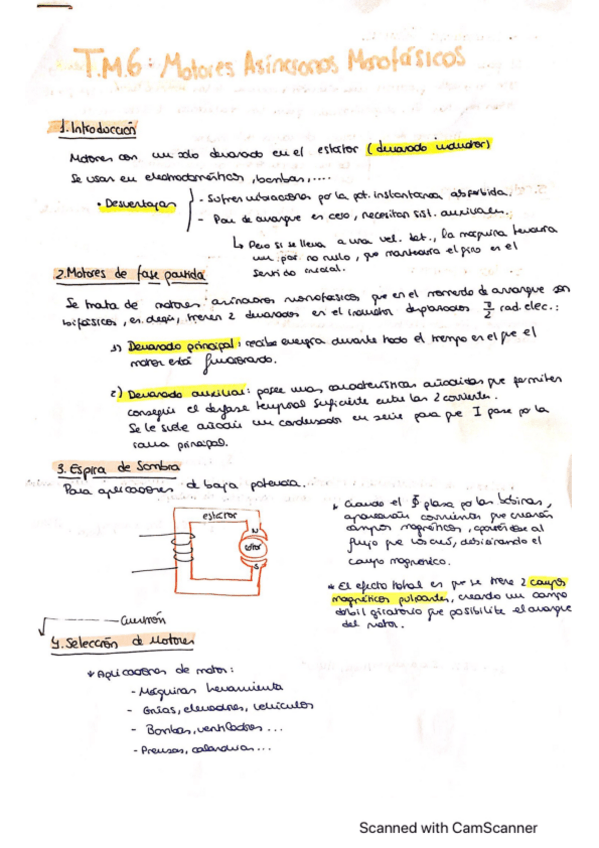 T.M.6: Motores Asíncronos Monofásicos
1. Introducción
Motores con un solo devanado en el estátor (devanado inductor)
Se usan en electrodomésticos, bombas,....
• Desventajas
- Sufren vibraciones por la pot. instantánea absorbida.
- Par de arranque es cero, necesitan sist. auxiliares.
↳ Pero si se lleva a una vel. det., la máquina tendría
un par no nulo, que mantendría el giro en el
sentido inicial.
2. Motores de fase partida
Se trata de motores asíncronos monofásicos que en el momento de arranque son
bifásicos, es decir, tienen 2 devanados en el inductor desplazados π/2 rad. elec.:
1) Devanado principal: recibe energía durante todo el tiempo en el que el
motor está funcionando.
2) Devanado auxiliar: posee unas características añadidas que permiten
conseguir el desfase temporal suficiente entre las 2 corrientes.
Se le suele añadir un condensador en serie para que I pase por la
rama principal.
3. Espira de Sombra
Para aplicaciones de baja potencia.
estátor
N
rotor
S
* Cuando el ϕ pasa por las bobinas,
aparecerán corrientes que crearán
campos magnéticos, oponiéndose al
flujo que los creó, debilitando el
campo magnético.
* El efecto total es que se tiene 2 campos
magnéticos pulsantes, creando un campo
giratorio que posibilite el arranque
del motor.
4. Selección de Motores
* Aplicaciones de motor:
- Máquinas herramienta
- Grúas, elevadores, vehículos
- Bombas, ventiladores ...
- Prensas, calandrias ...
Scanned with CamScanner